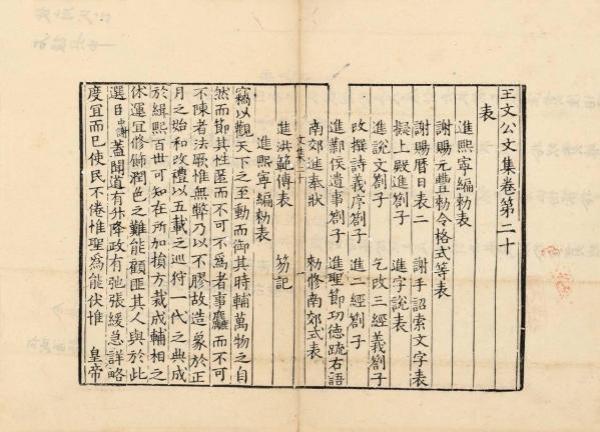 王文公文集卷第二十
表
進熙寧編勑表
謝賜元豐勑令格式等表
謝賜曆日表二 謝手詔索文字表
擬上殿進劄子 進字說表
進說文劄子 乞改三經義劄子
改撰詩義序劄子 進二經劄子
進鄴侯遺事劄子 進聖節功德疏右語
南郊進奉狀 勑修南郊式表
進洪範傳表 笏記
進熙寧編勑表
竊以觀天下之至動而御其時輔萬物之自
然而節其性匿而不可不為者事麤而不可
不陳者法厥惟無弊乃以不膠故造象於正
月之始和改禮以五載之巡狩一代之典成
於緝熙百世可知在所加損方裁成輔相之
休運宜修飾潤色之難能顧匪其人與於此
選中謝蓋聞道有升降政有弛張緩急詳略
度宜而已使民不倦惟聖為能伏惟 皇帝